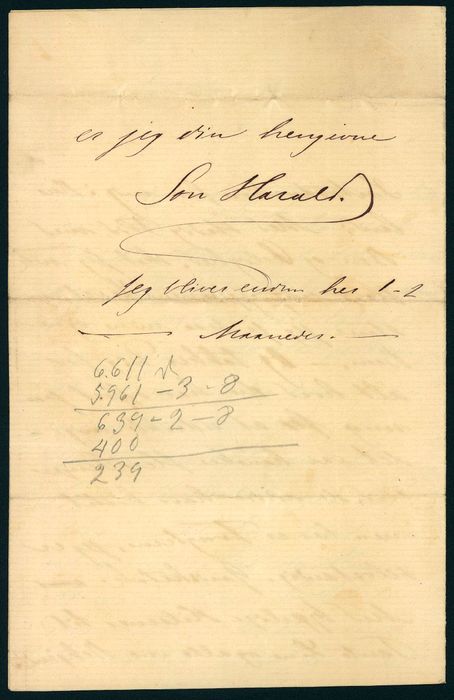 er jeg din hengivne
Søn Harald.
Jeg bliver endnu her 1-2
Maaneder.
6.611
5.961 - 3 - 8
639 - 2 - 8
400
239